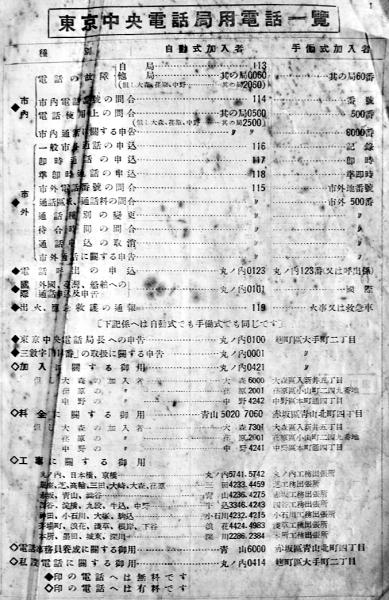 東京中央電話局用電話一覽
種別 自動式加入者 手働式加入者
自局 113
電話の故障 他局 其の局0060 其の局60番
(但し大森、荏原、中野 其の局2060)
市内
市內電話番號の問合 114 番號
電話使用上の問合 其の局0500 500番
(但し大森、荏原、中野 其の局2500)
市內通話に關する申告 〃 6000番
市外
一般市外通話の申込 116 記錄
卽時通話の申込 117 卽時
準卽時通話の申込 118 準卽時
市外電話番號の問合 115 市外地番號
通話區域、通話料の問合 〃 市外500番
通話種別の變更 〃 〃
待合時間の問合 〃 〃
通話申込の取消 〃 〃
市外通話に關する申告 〃 〃
◆電話呼出の申込 丸ノ內0123 丸ノ內123番(又は呼出係)
◆國際 外國、臺灣、船舶への通話申込及申告 丸ノ內0101 國際
◆出火、應急救護の通報 119 火事又は救急車
〔下記係へは自動式でも手働式でも同じです〕
◆東京中央電話局長への申告 丸ノ內0100 麴町區大手町二丁目
◆三數字「番」の取扱に關する申告 丸ノ內0001 〃
◇加入に關する御用 丸ノ內0421 〃
但し大森の加入者 大森6000 大森區入新井五丁目
荏原の〃 荏原2001 荏原區小山町二四九番地
中野の〃 中野4242 中野區本町通四丁目
◇料金に關する御用 靑山5020 7060 赤坂區靑山北町四丁目
但し大森の加入者 大森7301 大森區入新井五丁目
荏原の〃 荏原2001 荏原區小山町二四九番地
中野の〃 中野4241 中野區本町通四丁目
◇工事に關する御用
丸ノ內、日本橋、京橋 丸ノ內5741.5742 丸ノ內工務出張所
銀座、芝、高輪、三田、大崎、大森、荏原 三田4233.4459 芝工務出張所
赤坂、靑山、澁谷 靑山4236.4275 赤坂工務出張所
四谷、淀橋、九段、牛込、中野 牛込3346.4243 四谷工務出張所
神田、小石川、大塚、駒込 小石川4232.4215 小石川工務出張所
茅場町、浪花、淺草、根岸、下谷 浪花4424.4983 淺草工務出張所
本所、墨田、城東、深川 深川2286.2384 本所工務出張所
◇電話事務員養成に關する御用 靑山6000 赤坂區靑山北町四丁目
◇私設電話に關する御用 丸ノ內0414 麴町區大手町二丁目
◆印の電話へは無料です
◇印の電話へは有料です